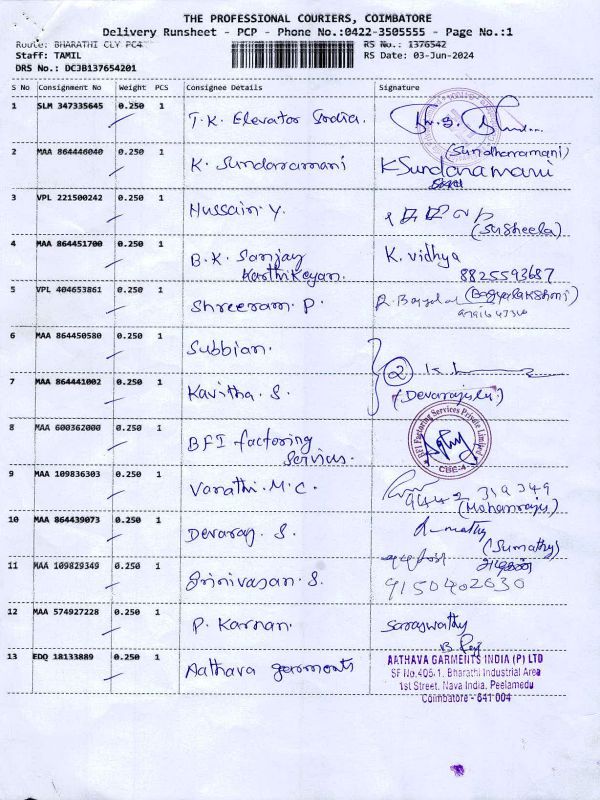 THE PROFESSIONAL COURIERS, COIMBATORE
Delivery Runsheet - PCP - Phone No.:0422-3505555 - Page No.:1
Route: BHARATHI CLY PC4
RS No.: 1376542
Staff: TAMIL
RS Date: 03-Jun-2024
DRS No.: DCJB137654201
S No Consignment No Weight PCS Consignee Details Signature
1 SLM 347335645 0.250 1 T.K. Elevator India.
2 MAA 864446040 0.250 1 K. Sundaramani (Sundharamani)
K Sundaramani
3 VPL 221500242 0.250 1 Hussain.Y.
(Susheela)
4 MAA 864451700 0.250 1 B.K. Sanjay K. Vidhya
Karthikeyan. 8825593687
5 VPL 404653861 0.250 1 Shreeram. P. (Bagyalakshmi)
6 MAA 864450580 0.250 1 Subbian.
2
7 MAA 864441002 0.250 1 Kavitha. S. (Devarajulu)
8 MAA 600362000 0.250 1 BFI factoring
Services.
BFI Factoring Services Private Limited
CBE-4
9 MAA 109836303 0.250 1 Vanathi.M.C. 9442 319349
(Mohanraju)
10 MAA 864439073 0.250 1 Devaraj. S.
(Sumathy)
11 MAA 109829349 0.250 1 Srinivasan. S. 9150402030
12 MAA 574927228 0.250 1 P. Karnan. Saraswathy
13 EDQ 18133889 0.250 1 Aathava garments
AATHAVA GARMENTS INDIA (P) LTD
SF No.405/1, Bharathi Industrial Area
1st Street, Nava India, Peelamedu
Coimbatore - 641 004